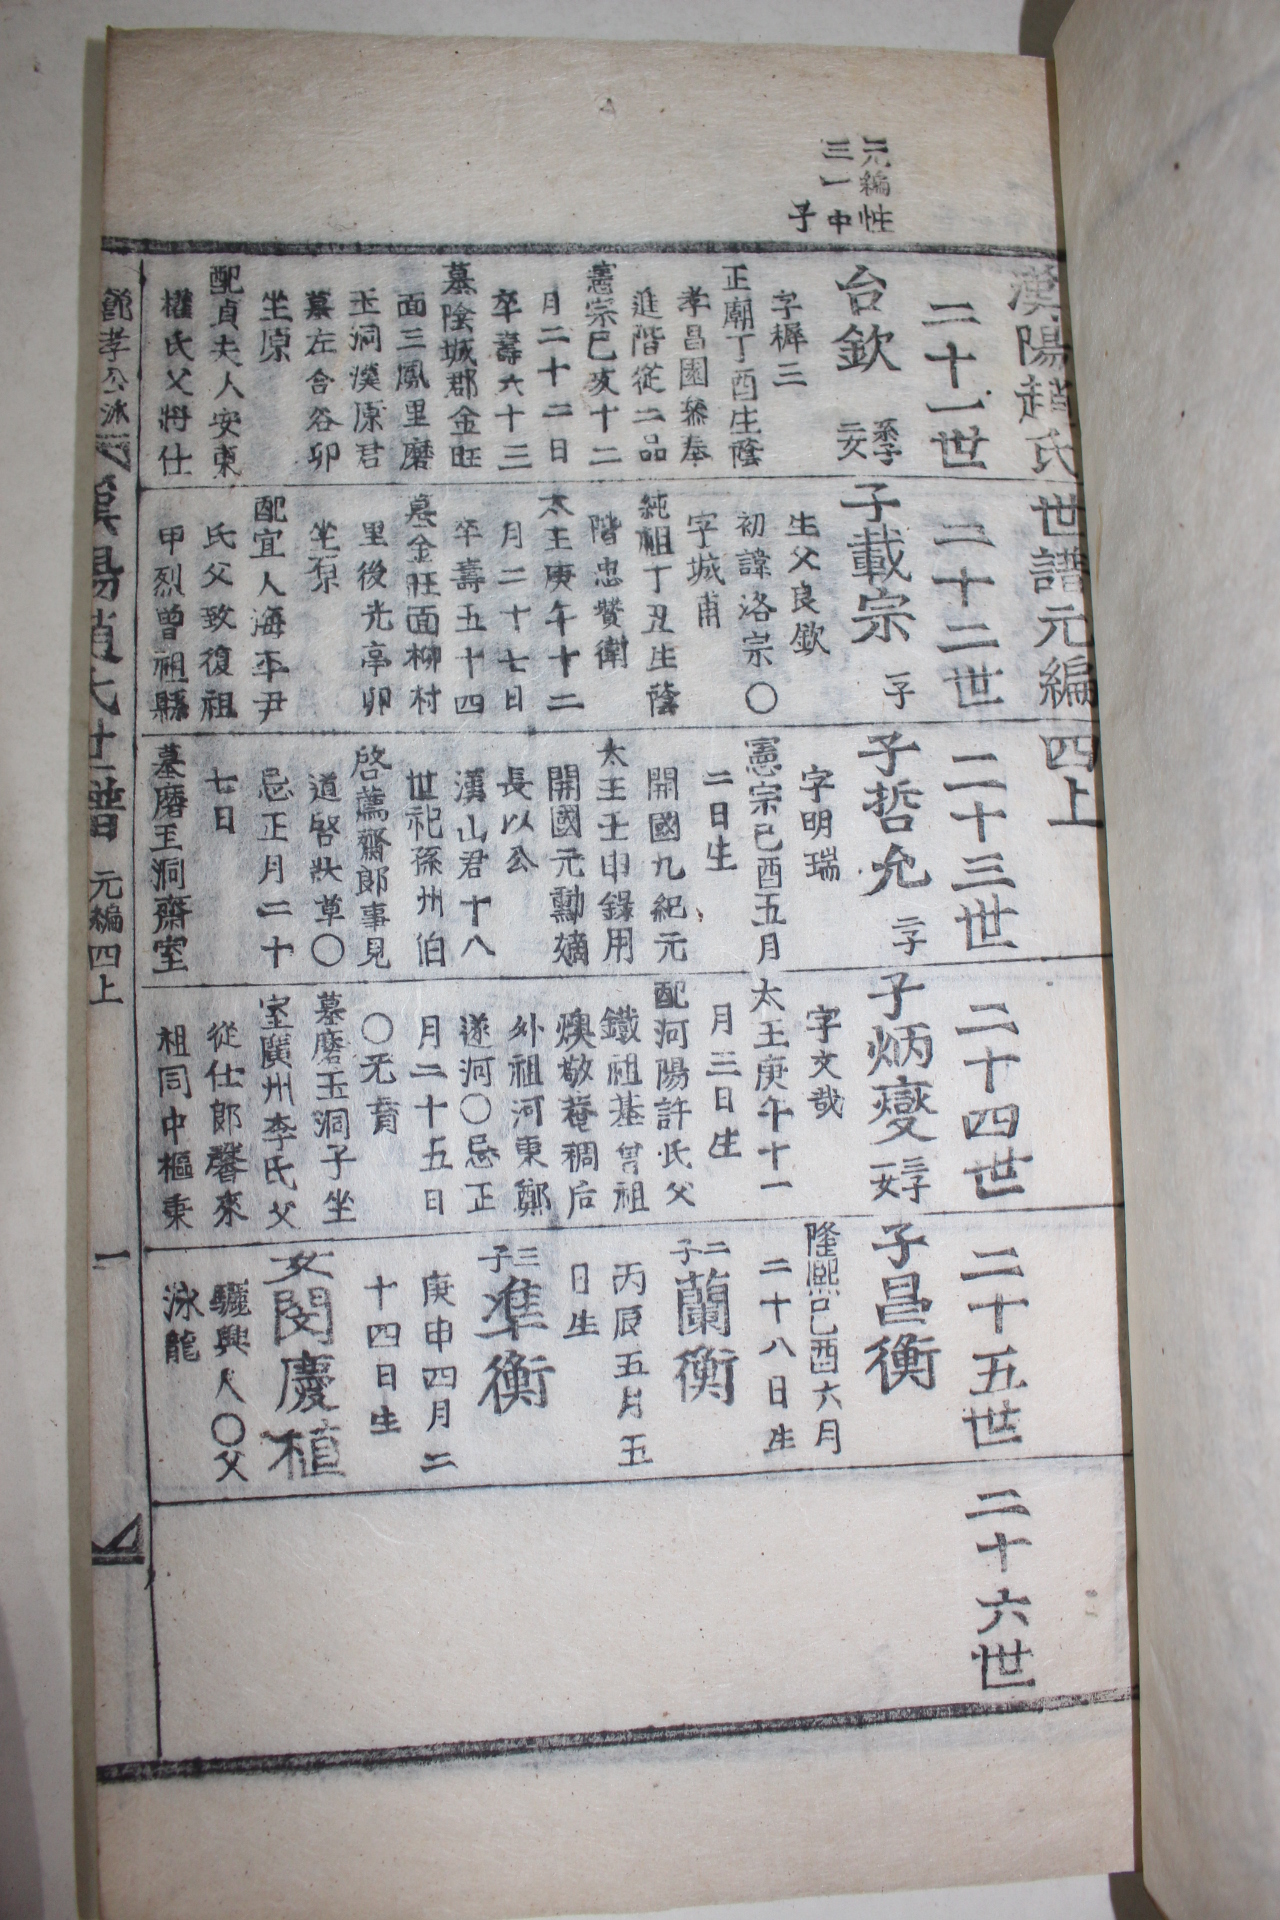 元編性
三一中
子
漢陽趙氏世譜元編四上
二十一世
台欽 系子 二女
字樨三
正廟丁酉生蔭
孝昌園叅奉
進階從二品
憲宗己亥十二
月二十二日
卒壽六十三
墓陰城郡金旺
面三鳳里磨
玉洞漢原君
墓左合谷卯
坐原
配貞夫人安東
權氏父將仕
二十二世
子載宗 二子
生父良欽
初諱洛宗〇
字城甫
純祖丁丑生蔭
階忠贊衛
太王庚午十二
月二十七日
卒壽五十四
墓金旺面柳村
里後光亭卯
坐原
配宜人海平尹
氏父致復祖
甲烈曾祖縣
二十三世
子哲允 二子
字明瑞
憲宗己酉五月
二日生
開國九紀元
太王壬申錄用
開國元勳嫡
長以公
漢山君十八
世祀孫州伯
啓薦齋郞事見
道啓狀草〇
忌正月二十
七日
墓磨玉洞齋室
二十四世
子炳奱 三子 一女
字文哉
太王庚午十一
月三日生
配河陽許氏父
鐵祖基曾祖
煥敬菴稠后
外祖河東鄭
遂河〇忌正
月二十五日
〇无育
墓磨玉洞子坐
室廣州李氏父
從仕郎馨來
祖同中樞秉
二十五世
子昌衡
隆熙己酉六月
二十八日生
二子蘭衡
丙辰五月五
日生
三子準衡
庚申四月二
十四日生
女閔慶植
驪興人〇父
泳龍
二十六世
節孝公派
漢陽趙氏世譜 元編四上
一